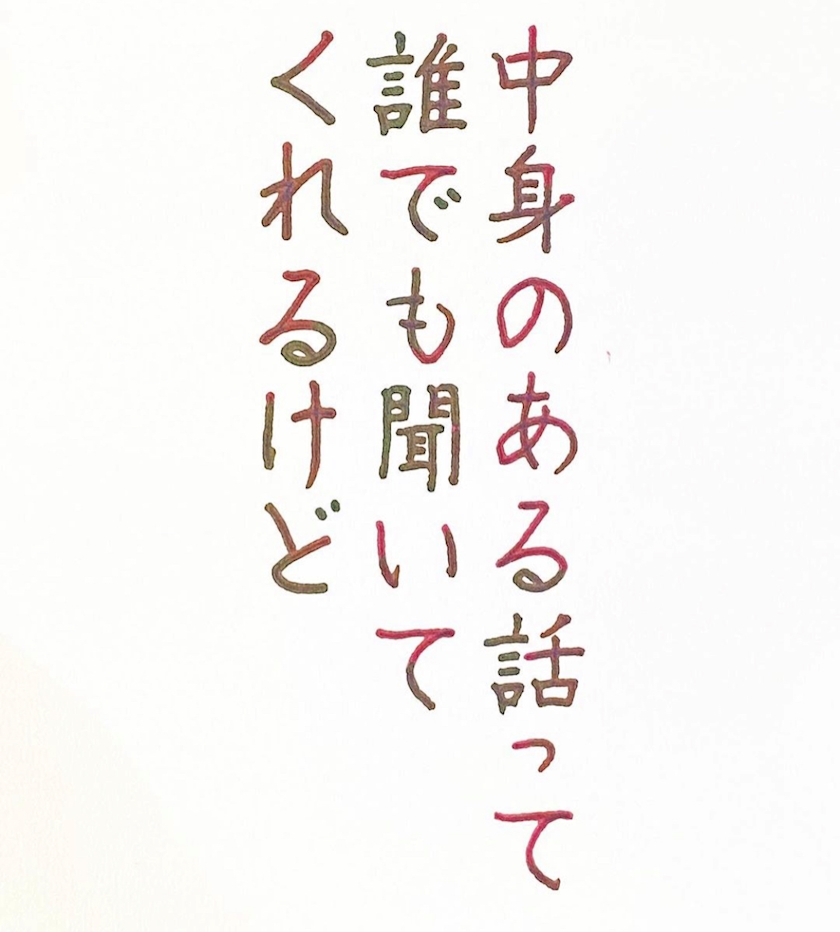 中身のある話って
誰でも聞いて
くれるけど